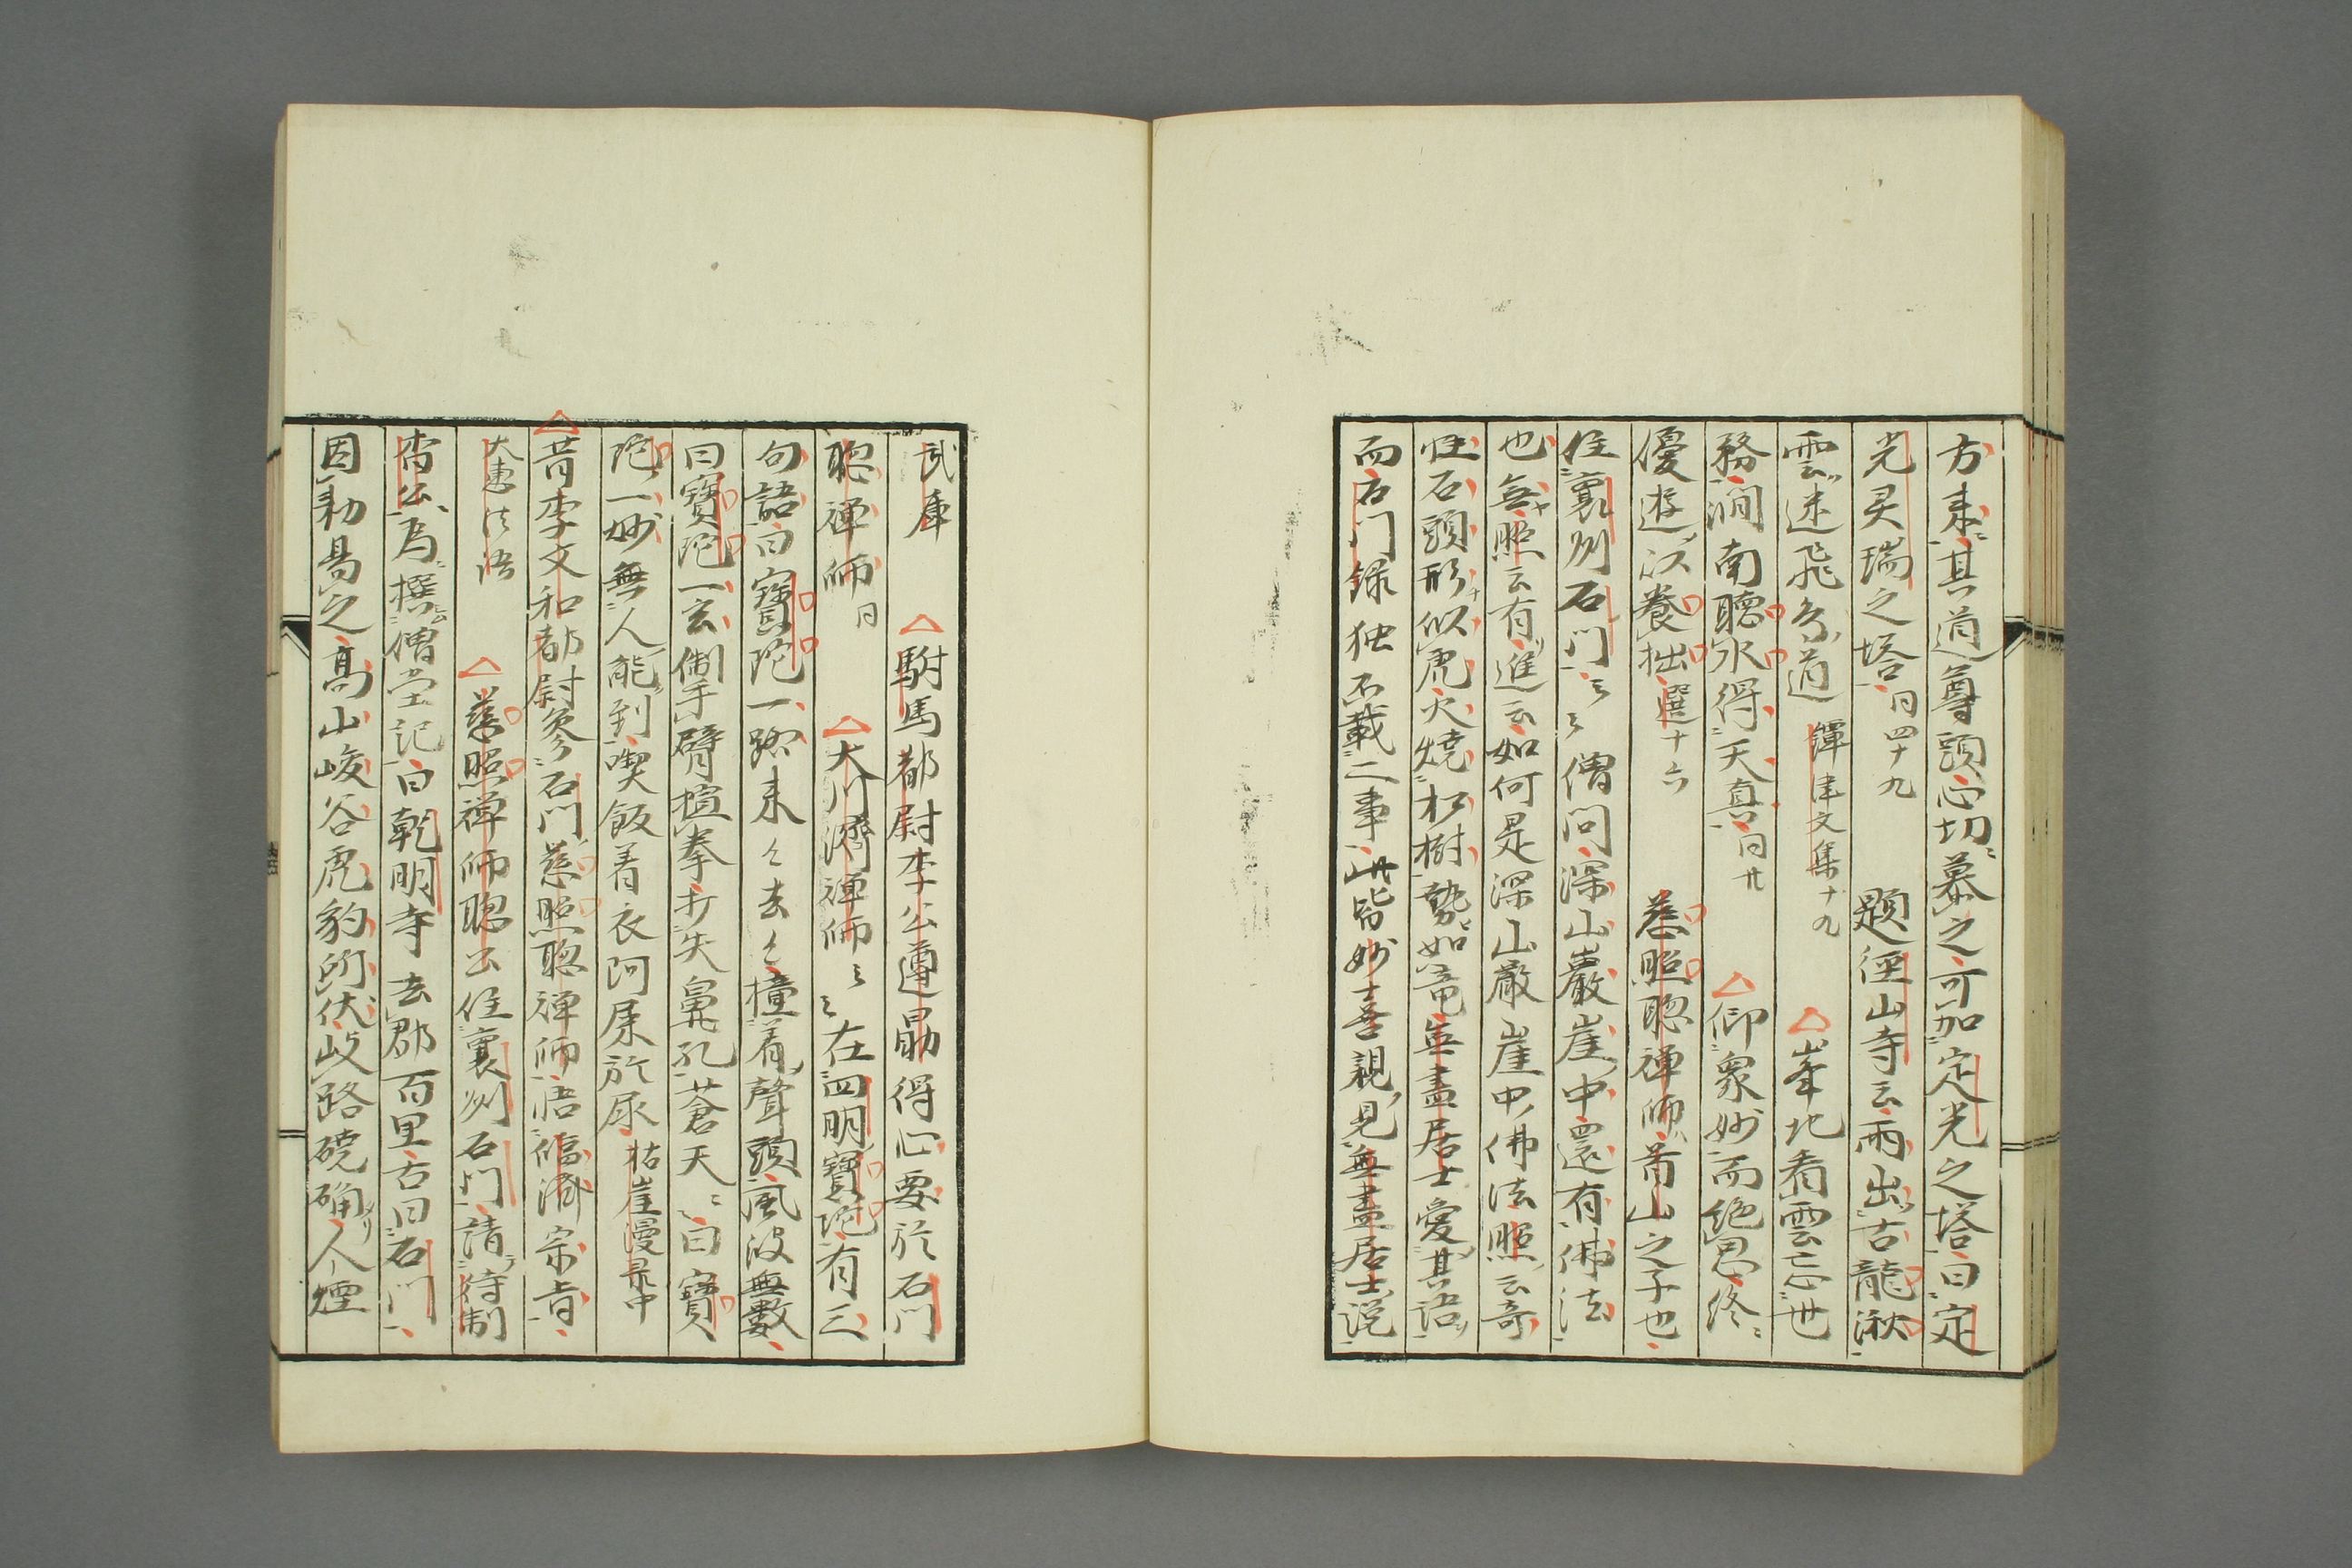 方来其道尊頭心切慕之可加定光之塔曰定
光灵瑞之塔同四十九　題径山寺云雨出古龍湫
雲迷飛鳥道鐔津文集十九　△峯北看雲忘世
務澗南聴水得天真同廿　△仰衆妙而絶思終
優遊以養拙選十六　慈照聡禅師首山之子也
住襄州石門〻〻僧問深山巖崖中還有佛法
也無照云有進云如何是深山巌崖中佛法照云奇
恠石頭形似虎火焼松樹勢如竜無盡居士愛其語
而石門録独不載二事此皆妙喜親見無盡居士説
武庫　△駙馬都尉李公遵勗得心要於石門
聡禅師同　△大川濟禅師〻〻在四明寶陀有三
句語曰寶陀一路来〻去〻撞着聱頭風波無數
曰寶陀一玄掣手臂揎拳打失鼻孔蒼天〻曰寶
陀一妙無人能到喫飯着衣阿屎放尿枯崖漫录中
△昔李文和都尉参石門慈照聡禅師悟臨済宗旨
大恵法語　△慈照禅師聡公住襄州石門請待制
査公為撰僧堂記曰乾明寺去郡百里古曰石門
因勅易之高山峻谷虎豹所伏岐路磽确人煙